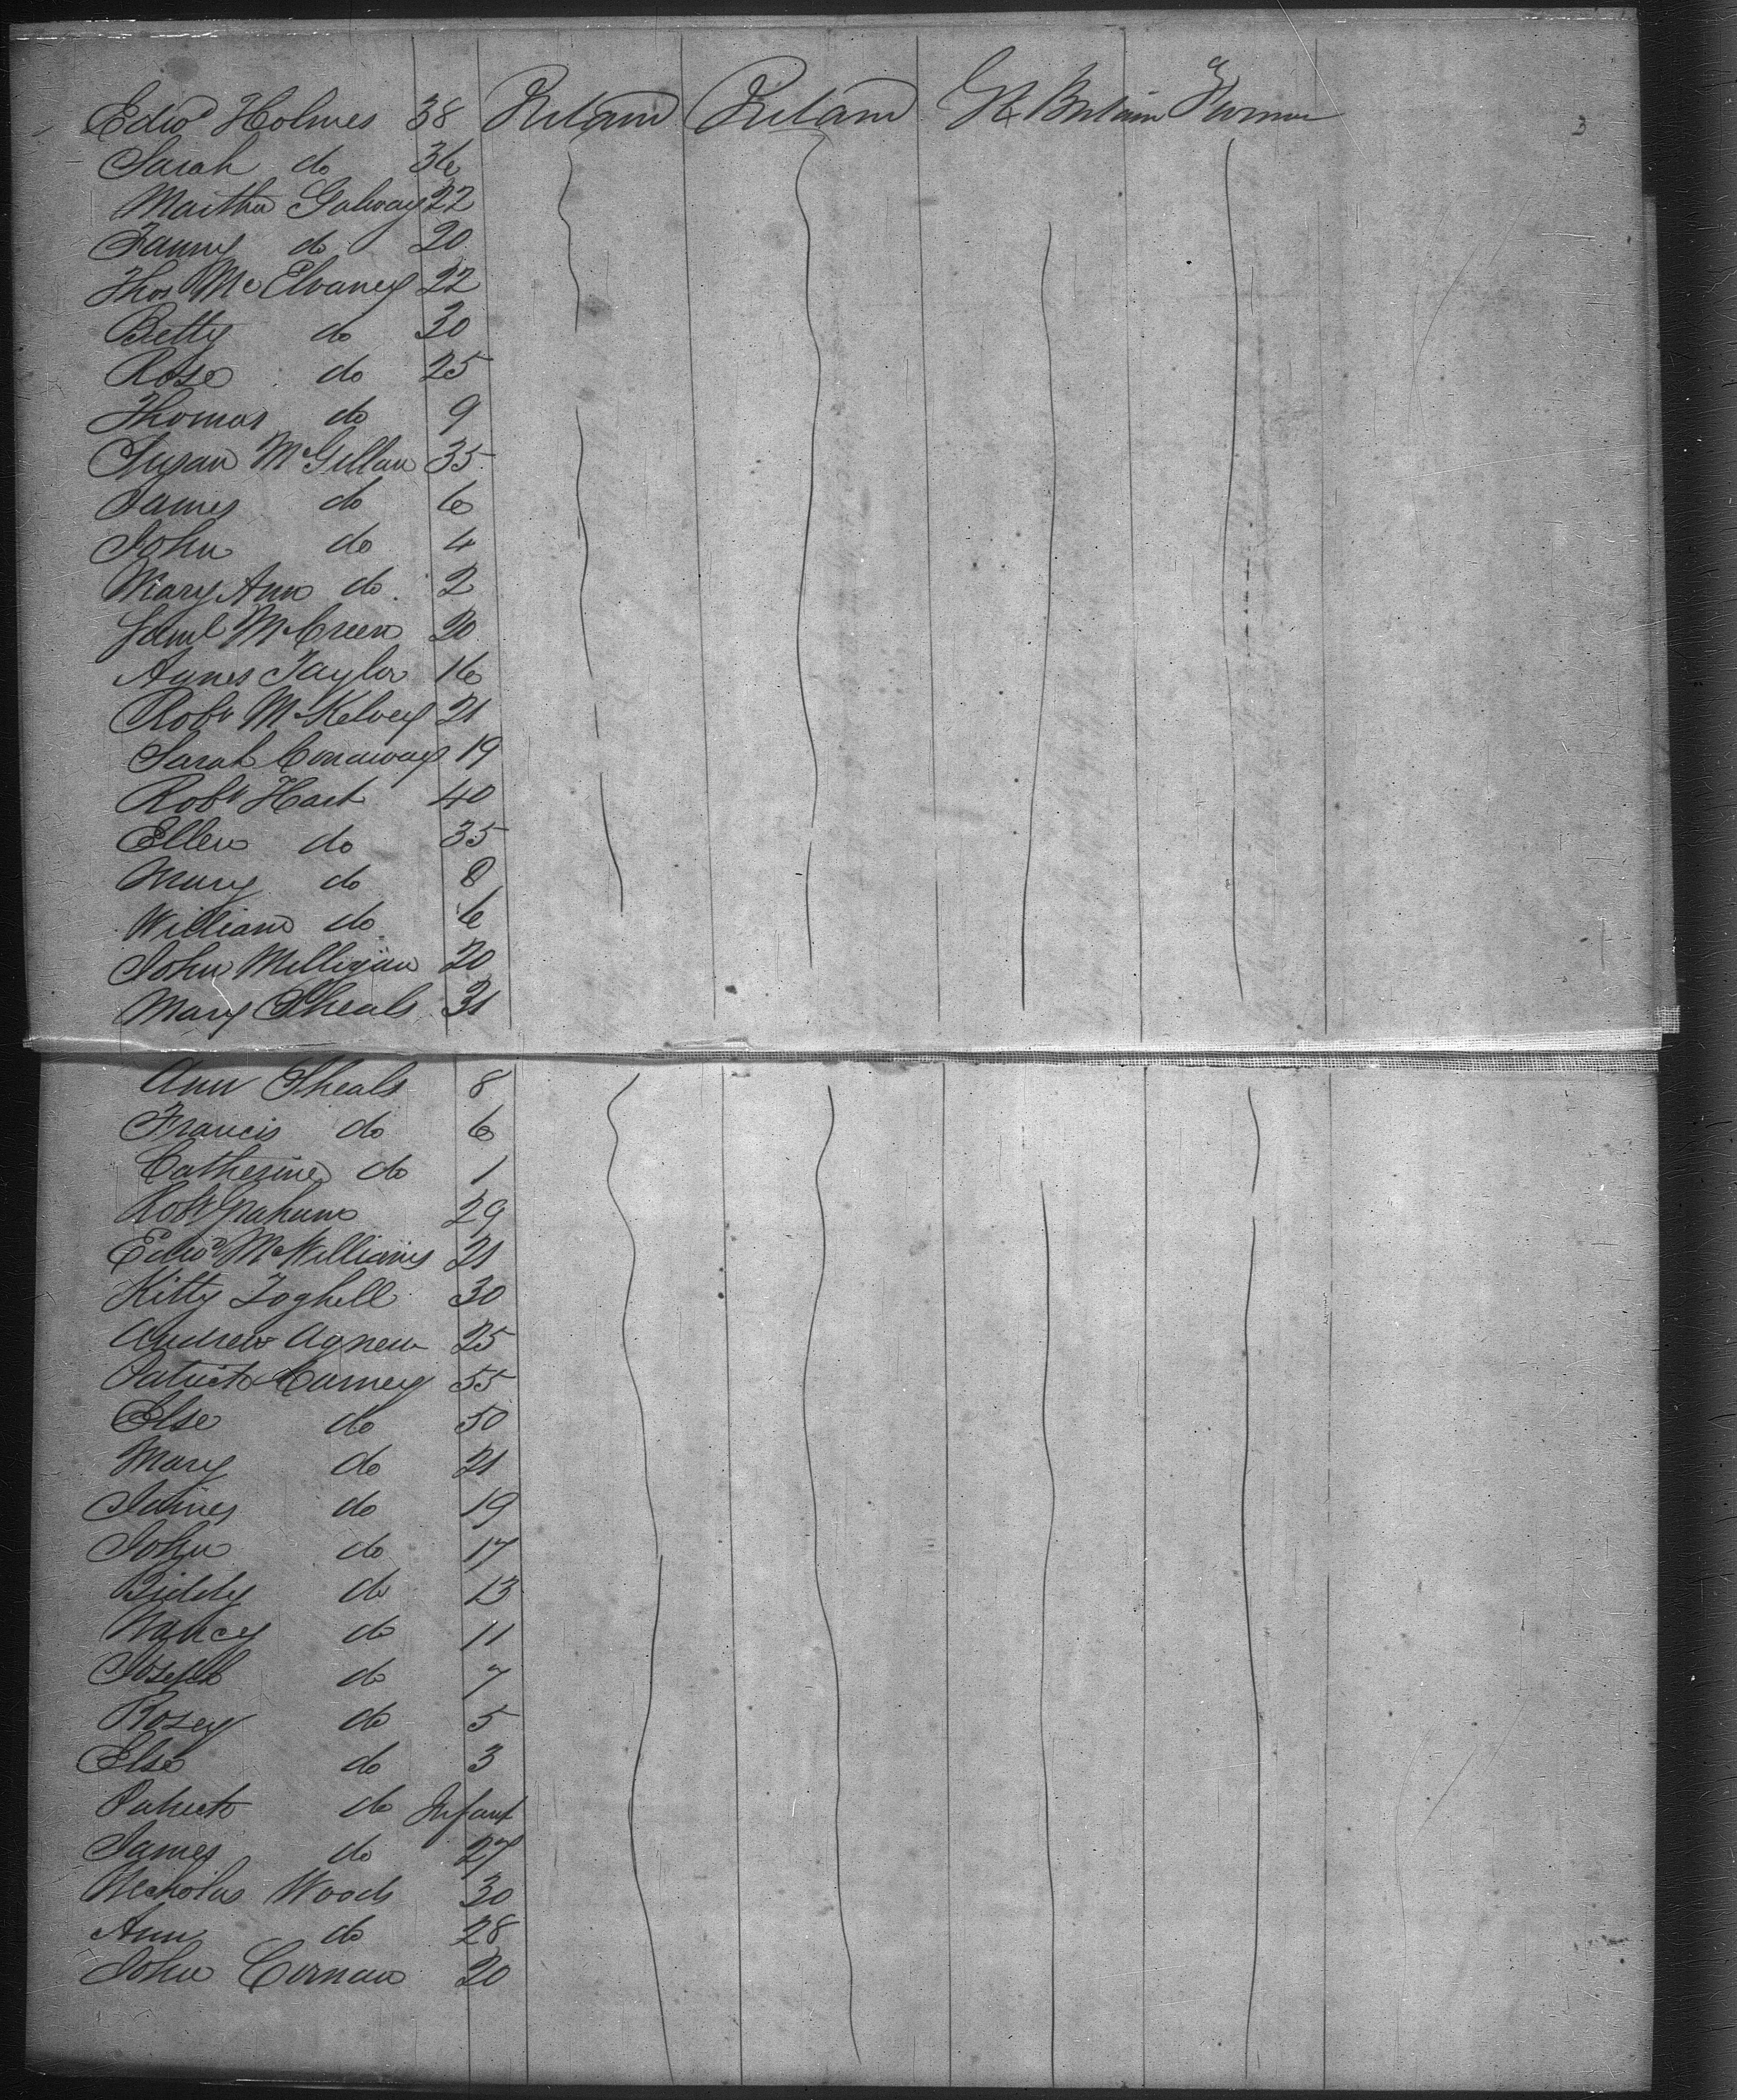 Edwd Holmes 38 Ireland Ireland Gt Britain Farmer
3
Sarah do 36
Martha Galway 22
Fanny do 20
Thos McElvaney 22
Betty do 30
Rose do 25
Thomas do 9
Susan McGillan 35
James do 6
John do 4
Mary Ann do 2
Saml McCreen 20
Agnes Taylor 16
Robt McKelvey 21
Sarah Conaway 19
Robt Hart 40
Ellen do 35
Mary do 8
William do 6
John Milligan 20
Mary Sheals 31
Ann Sheals 8
Francis do 6
Catherine do 1
Robt Graham 29
Edwd McWilliams 21
Kitty Foghell 30
Andrew Agnew 25
Patrick Curney 55
Else do 50
Mary do 21
James do 19
John do 17
Biddy do 13
Nancy do 11
Joseph do 7
Rosey do 5
Else do 3
Patrick do Infant
James do 27
Nicholas Woods 30
Ann do 28
John Cornan 20